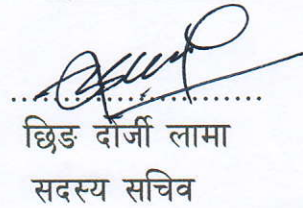 छिङ दोर्जी लामा
सदस्य सचिव